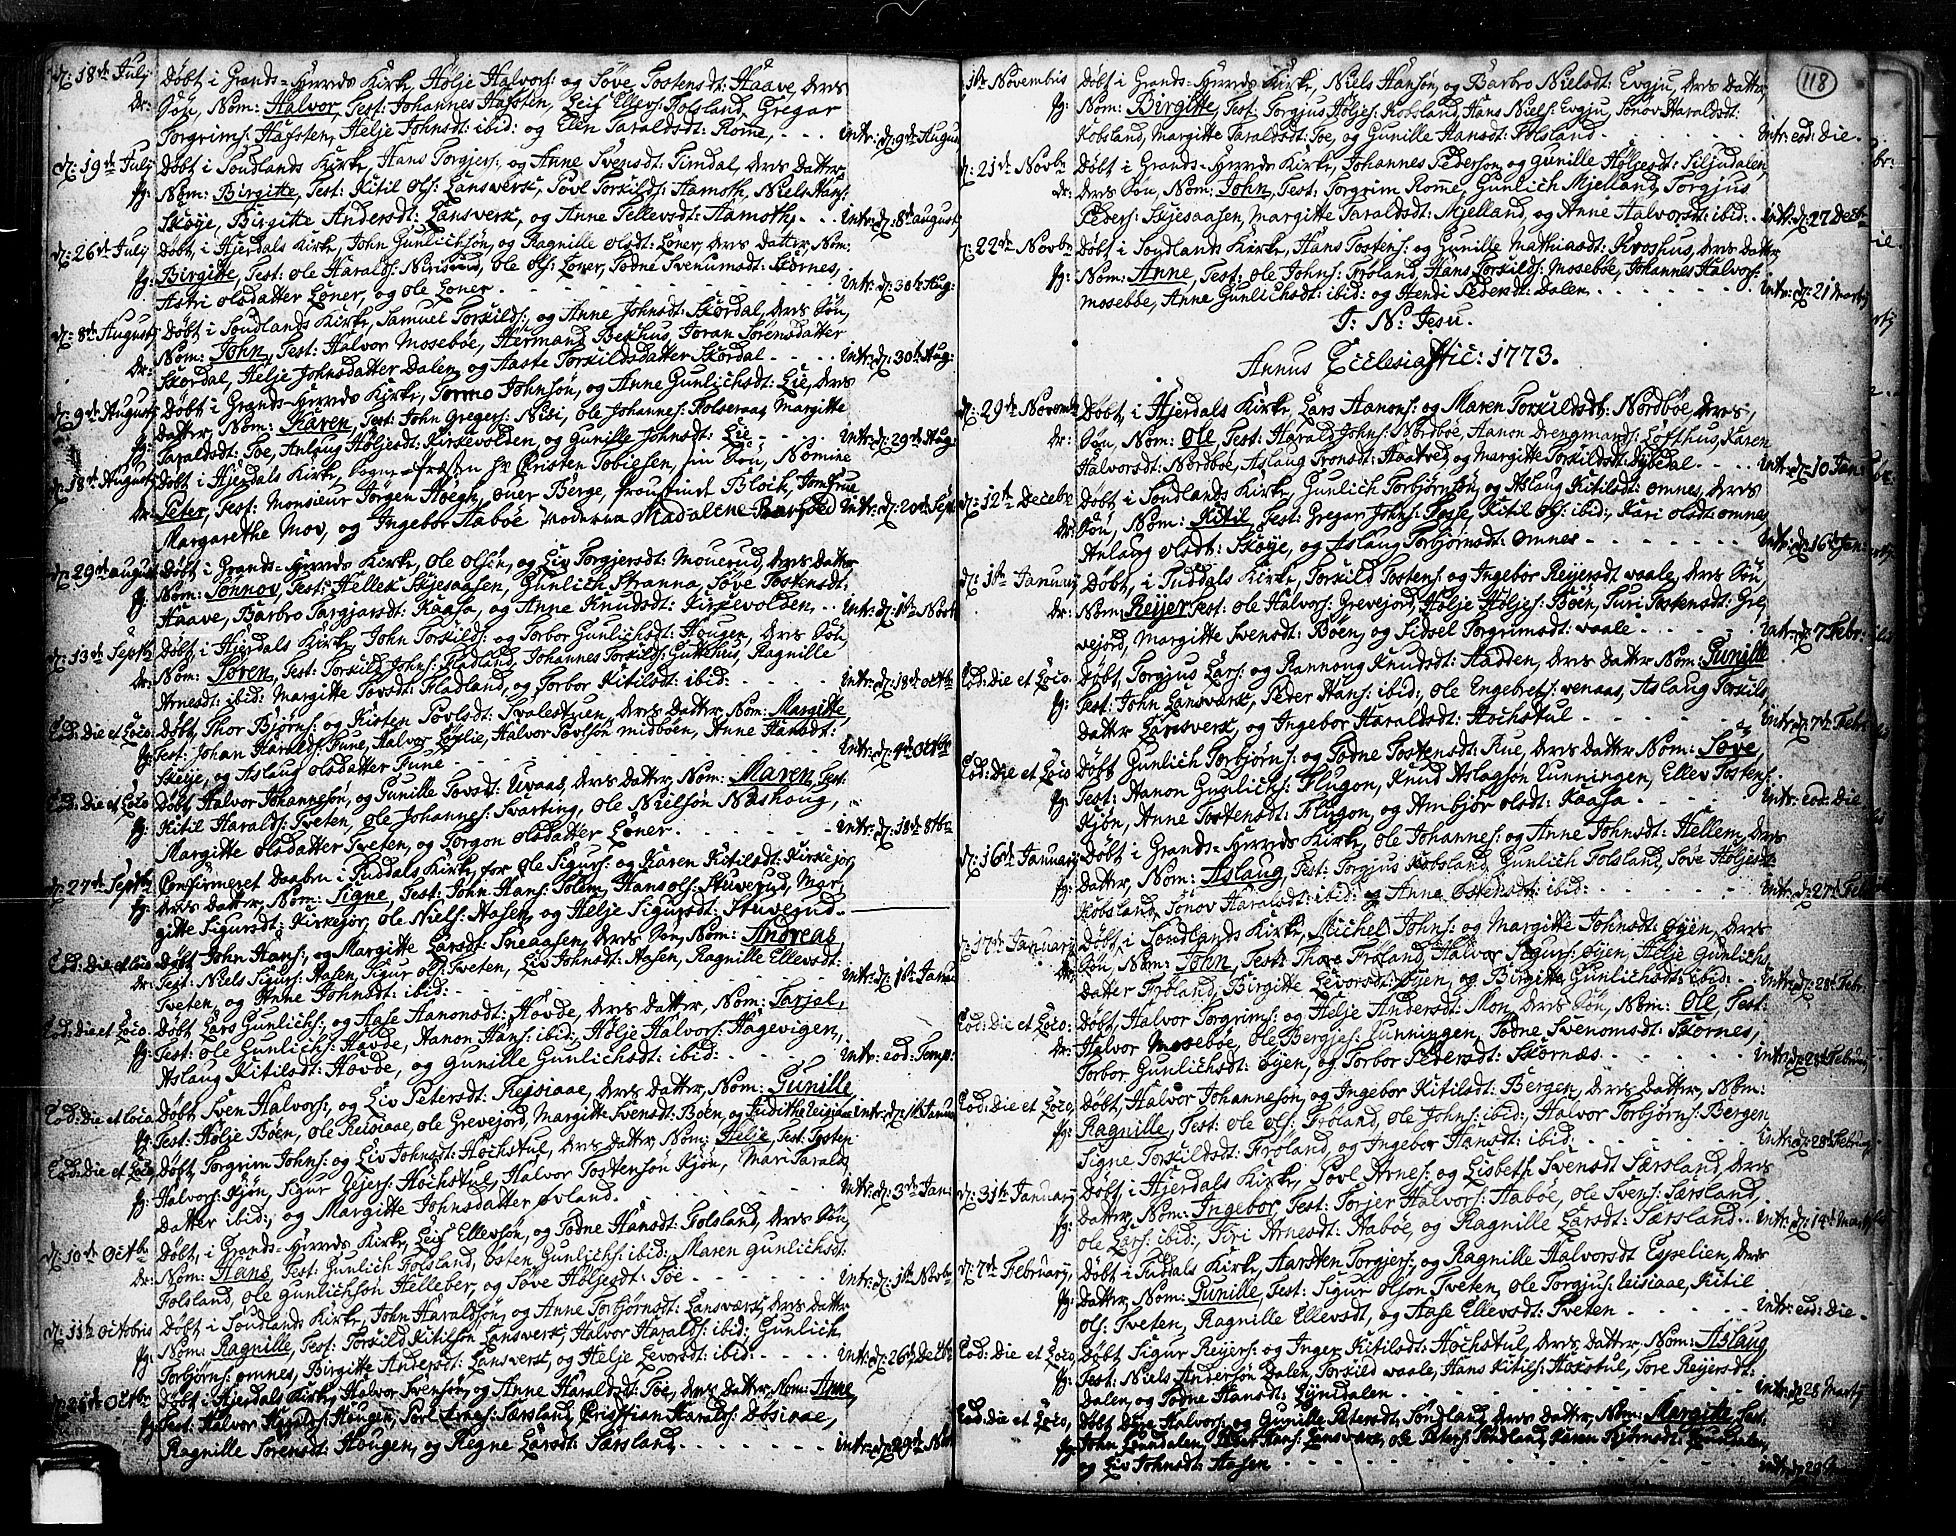 d: 18de July Døbt i Grands-Herreds Kirke, Hølje Halvors: og Søve Tostensdt: Haave, deres
dr: Søn, Nom: Halvor, Test: Johannes Hafsten, Leif Ellevs: Folsland, Gregar
Torgrims: Hafsten, Helje Johnsdt: ibid: og Ellen Taraldsdt: Rome, - - - intr: d: 9de August
d: 19de July Døbt i Soudlands Kirke, Hans Torgjers: og Anne Svensdt: Timdal, deres Datter
fg: Nom: Birgitte, Test: Kitil Ols: Lansverk, Tovl Torkilds: Aamoth, Niels Hans:
Skoje, Birgitte Andersdt: Lansverk, og Anne Tellevsdt: Aamoth, - - - intr: d: 8de august,
d: 26de July Døbt, i Hjerdals Kirke, John Gunlichsøn, og Ragnille olsdt: Loner, deres Datter, Nom:
fg: Birgitte, Test: ole Haralds: ole ols: Loner, Todne Svenumsdt: Skornes,
Astri olsdatter Loner, og ole Loner. - - - intr: d: 30de Aug:
d: 8de Augusti Døbt i Soudlands Kirke, Samuel Torkilds: og Anne Johnsdt: Skordal, deres Søn,
dr: Nom: John, Test: Halvor Mosebøe, Hermand Bekhus, Joran Sørensdatter
Skordal, Helje Johnsdatter Dalen, og Aaste Torkildsdatter Skordal - - - intr: d: 30te Aug:
d: 9de Augusti Døbt i Grands-Herreds Kirke, Tormo Johnsøn, og Anne Gunlichsdt: Lie, deres
fg: Datter, Nom: Karen, Test: John Gregers: Nisi, ole Johannes: Folseraas, Margitte
Taraldsdt: Toe, Anlaug Høljesdt: Kirkevolden, og Gunille Johnsdt: Lie - - - intr: d: 29de Aug:
d: 18de Augusti Døbt i Hjerdals Kirke, Sogne-Præsten Hr Christen Tobiesen, sin Søn, Nomine
dr: Peter, Test: Monsieur Jørgen Høegh, over Berge, Bloch, Jomfrue
Margarethe Mov, og Ingebor Aabøe Moderna Madalene intr: d: 20de Sept
d: 29de august Døbt i Grands-Herreds Kirke, Ole Olsøn, og Liv Torgjersdt: Mouerud, deres Datter
fg: Nom: Sønnov, Test: Hellek Skjesaasen, Gunlich Stranna, Søve Tostensdt:
Haave, Barbro Targjarsdt: Kaasa, og Anne Knudsdt: Kirkevolden, - - intr: d: 1ste Novb
d: 13de Septb Døbt i Hjerdals Kirke, John Torkilds: og Torbor Gunlichsdt: Hougen, deres Søn,
dr: Nom: Søren, Test: Torkild Johns: Fladland, Johannes Torkilds: Gutthus, Ragnille
Arnesdt: ibid: Margitte Tovsdt: Fladland, og Torbor Kitilsdt: ibid: - - - intr: d: 18de octb
Eod: die et Loco: Døbt, Thor Bjørns: og Kisten Tovlsdt: Svalestuen, deres Datter, Nom: Margitte,
fg: Test: Johan Haralds: Fune, Halvor Løjlie, Halvor Tovlsøn midbøen, Anne Hansdt:
Skeije, og Aslaug olsdatter Fune - - - intr: d: 4de octbr
Eod: die et Loco Døbt Halvor Johannesøn, og Gunille Tovsdt: Uvaas, deres Datter, Nom: Maren, Test:
fg: Kitil Haralds: Tveten, ole Johannes: Svarting, ole Nielsøn Næshoug,
Margitte olsdatter Tveten, og Torgon olsdatter Loner - - - intr: d: 18de 8tbr
d: 27de Septb Confirmeret Daaben i Tuddals Kirke, for ole Sigurs: og Karen Kitilsdt: Kirkejor,
fg: deres Datter, Nom: Signe, Test: John Hans: Tolem, Hans ols: Stuverud, Mar-
gitte Sigursdt: Kirkejor, ole Niels: Aasen, og Helje Sigursdt: Stuverud -
Eod: die et loco Døbt John Hans: og Margitte Larsdt: Sneaasen, deres Søn, Nom: Andreas,
dr: Test: Niels Sigurs: Aasen, Sigur ols: Tveten, Liv Johnsdt: Aasen, Ragnille Ellevsdt:
Tveten, og Anne Johnsdt: ibid: - - - intr: d: 1ste Janu
Eod: die et Loco: Døbt Lars Gunlichs: og Aase Aanonsdt: Hovde, deres Datter, Nom: Tarjal,
fg: Test: ole Gunlichs: Hovde, Aanon Hans: ibid: Hølje Halvors: Hagevigen,
Aslaug Kitilsdt: Hovde, og Gunille Gunlichsdt: ibid: - - - intr: eod: Temp:
Eod: die et loco Døbt Sven Halvors: og Liv Petersdt: Reisiaae, deres Datter, Nom: Gunille,
fg: Test: Hølje Bøen, ole Reisiaae, ole Grevejord, Margitte Svensdt: Bøen, og intr: d: 1ste Janu
Eod: die et Loco, Døbt, Torgrim Johns: og Liv Johnsdt: Hochstul, deres Datter, Nom: Helje, Test: Tosten
fg: Halvors: Kjøn, Sigur Rejers: Hochstul, Halvor Tostensøn Kjøn, Mari Taralds
Datter ibid:, og Margitte Johnsdatter Øvland. - - - intr: d: 3de Jan:
d: 10de Octb Døbt, i Grands-Herreds Kirke, Leif Ellevsøn, og Todne Hansdt: Folsland, deres Søn,
dr: Nom: Hans, Test: Gunlich Folsland, Østen Gunlichs: ibid: Maren Gunlichsdt:
Folsland, ole Gunlichsøn Helleber, og Søve Høljesdt: Toe - - - intr: d: 1ste Novbr
d: 11te Octobris Døbt i Soudlands Kirke, John Haraldsøn, og Anne Torbjørnsdt: Lansværk, deres Datter
fg: Nom: Ragnille, Test: Torkild Kitilsøn Lansverk, Halvor Haralds: ibid: Gunlich
Torbjørns: omnes, Birgitte Andersdt: Lansverk, og Helje Levorsdt: ibid: - - - intr: d: 26de Decbr
d: 25de Octbr Døbt i Hjerdals Kirke, Halvor Svensøn, og Anne Haraldsdt: Toe, deres Datter, Nom: Anne,
fg: Test: Halvor Haralds: Hougen, Tovl Arnes: Særsland, Christian Haralds: Døsiaae,
Ragnille Torensdt: Hougen, og Regne Larsdt: Særsland - - - intr: d: 29de Nov
118
1ste Novembris Døbt i Grands-Herreds Kirke, Niels Hansøn, og Barbro Nielsdt: Evgju, deres Datter,
fg: Nom: Birgitte, Test: Torgjus Høljes: Kobsland, Hans Niels: Evgju, Sønov Haraldsdt:
Kobsland, Margitte Taraldsdt: Toe, og Gunille Hansdt: Folsland - - - intr: eod: die -
d: 21de Novbr Døbt i Grands-Herreds Kirke, Johannes Pedersøn, og Gunille Høljesdt: Siljudalen,
dr: deres Søn, Nom: John, Test: Torgrim Rome, Gunlich Mjelland, Torgjus
Peders: Skjesaasen, Margitte Taraldsdt: Mjelland, og Anne Halvorsdt: ibid: - intr: d: 27 Decb
d: 22de Novbr Døbt i Soudlands Kirke, Hans Tostens: og Gunille Mathiasdt: Kroshus, deres Datter
fg: Nom: Anne, Test: ole Johns: Frøland, Hans Torkilds: Mosebøe, Johannes Halvors:
mosebøe, Anne Gunlichsdt: ibid: og Hendi Pedersdt: Dalen - - - intr: d: 21 Marty
I: N: Jesu.
Annus Ecclesiastic: 1773.
d: 29de Novemb Døbt, i Hjerdals Kirke, Lars Aanons: og Maren Torkildsdt: Nordbøe, deres,
dr: Søn, Nom: Ole, Test: Harald Johns: Nordbøe, Aanon Drengmans: Lofthus, Karen
Halvorsdt: Nordbøe, Aslaug Tronsdt: Haatved, og Margitte Torkildsdt: Dybedal - - - intr: d: 10 Jan
d: 12te Decebr Døbt i Soudlands Kirke, Gunlich Torbjørnsøn, og Aslaug Kitilsdt: omnes, deres
dr: Søn, Nom: Kitil, Test: Gregar Johns: Fosse, Kitil Ols: ibid:, Kari olsdt: omnes,
Anlaug olsdt: Skoje, og Aslaug Torbjørnsdt: Omnes - - - intr: d: 16de Jan:
d: 1ste January Døbt, i Tuddals Kirke, Torkild Tostens: og Ingebor Rejersdt Waale, deres Søn,
dr: Nom: Rejer, Test: ole Halvors: Grevejord, Hølje Høljes: Bøen, Turi Tostensdt: Gre-
vejord, Margitte Svensdt: Bøen, og Sidsel Torgrimsdt: Waale - - - intr: d: 7 Febr:
Eod: die et Loco Døbt, Torgjus Lars: og Rannoug Knudsdt: Hadden, deres Datter Nom: Gunille
fg: Test: John Lansverk, Peder Hans: ibid:, ole Engebrets: venaas, Aslaug Torkils-
datter Lansverk, og Ingebor Haraldsdt: Hochstul - - - intr: d: 7de Febr
Eod: die et Loco Døbt Gunlich Torbjørns: og Todne Tostensdt: Rue, deres Datter Nom: Søve,
fg: Test: Aanon Gunlichs: Flugon, Knud Aslagsøn Lunningen, Ellev Tostens:
Kjøn, Anne Tostensdt: Flugon, og Ambjør olsdt: Kaasa - - - intr: eod: die -
d: 16de January Døbt i Grands-Herreds Kirke, ole Johannes: og Anne Johnsdt: Hellem, deres
fg: Datter, Nom: Aslaug, Test: Torgjus Kobsland, Gunlich Folsland, Søve Høljesdt
Kobsland, Sønov Haraldsdt: ibid: og Anne Østensdt: ibid: - - - intr: d: 27de Feb
d: 17de January Døbt, i Soudlands Kirke, Michel Johns: og Margitte Johnsdt: Øyen, deres
dr: Søn, Nom: John, Test: Thore Frøland, Halvor Sigurs: Øyen, Helje Gunlichs
Datter Frøland, Birgitte Levorsdt: Øyen, og Birgitte Gunlichsdt: ibid: intr: d: 28de Febr:
Eod: die et Loco: Døbt, Halvor Torgrims: og Helje Andersdt: Mon, deres Søn, Nom: Ole, Test:
dr: Halvor Mosebøe, ole Bergjes: Lunningen, Todne Svenomsdt: Skornes,
Torbor Gunlichsdt: Øyen, og Torbor Pedersdt: Skornæs - - - intr: d: 28de Februar
Eod: die et Loco, Døbt, Halvor Johannesøn, og Ingebor Kitilsdt: Bergen, deres Datter, Nom:
fg: Ragnille, Test: ole ols: Frøland, ole Johns: ibid:, Halvor Torbjørns: Bergen,
Signe Torkildsdt: Frøland, og Ingebor Hansdt: ibid: - - - intr: d: 28de Februar
d: 31te January Døbt i Hjerdals Kirke, Tovl Arnes: og Lisbeth Svensdt Særsland, deres
fg: Datter, Nom: Ingebor, Test: Torjer Halvors: Aabøe, ole Svens: Særsland,
ole Lars: ibid:, Siri Arnesdt: Aabøe, og Ragnille Larsdt: Særsland - - intr: d: 14de Marty
d: 7de February, Døbt i Tuddals Kirke, Karsten Torgjers: og Ragnille Halvorsdt Espelien, deres
fg: Datter, Nom: Gunille, Test: Sigur olson Tveten, ole Torgjus: Leisiaae, Kitil
ols: Tveten, Ragnille Ellevsdt, og Aase Ellevsdt: Tveten - - - intr: eod: die -
Eod: die et Loco Døbt Sigur Rejers: og Inger Kitilsdt: Hochstul, deres Datter, Nom: Aslaug,
fg: Test: Niels Andersøn Dalen, Torkild waale, Hans Kitils: Hokstul, Tore Rejersdt:
Dalen, og Todne Hansdt: Lyndalen - - - intr: d: 28 Marty
Eod: die et Loco, Døbt Halvors: og Gunille Petersdt: Sondland, deres Datter, Nom: Margitte, Test:
fg: John Hans: Lansverk, ole Peters: Sondland, Karen Bjørnsdt:
og Liv Johnsdt: Aasen - - - intr: d: 28